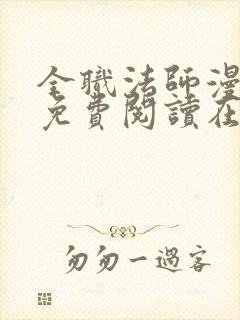 全職法師漫
免費閱讀在
匆匆一過客